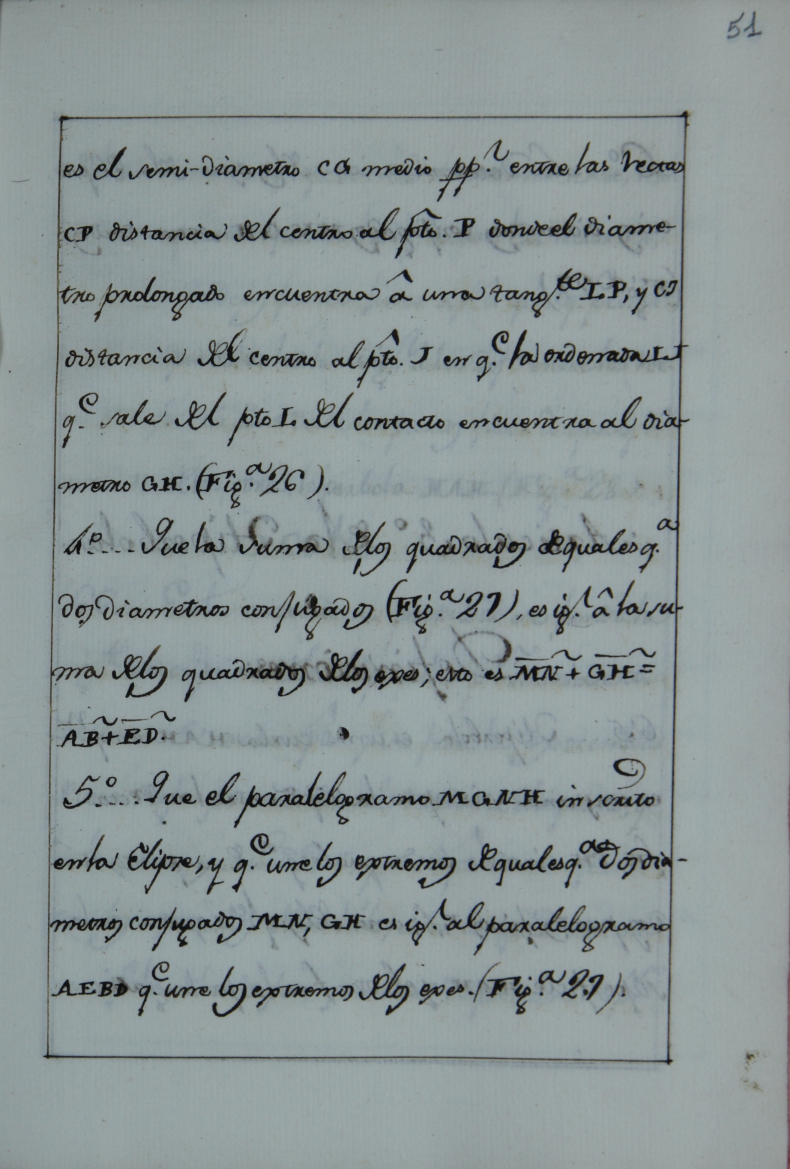 51
es el semi-diametro CG medio pp.l entre las rectas
CP distancia del centro al pto. P donde el diame-
tro prolongado encuentra â una tang.te LP, y CI
distancia del centro al pto. I en q.e la ordenada LI
q.e sale del pto L del contacto encuentra al dia-
metro GH. (Fig.a 26).
4.o... Que la Suma de los quadrados de qualesq.a
dos diametros conjugados (Fig.a 27), es ig.l â la su-
ma de los quadrados de los exes; esto es MN + GH =
AB + ED.
5.o... Que el paralelogramo MGNH inscrito
en la Elipse, y q.e une los extremos de qualesq.a dos dia-
metros conjugados MN, GH es ig.l al paralelogramo
AEBD q.e une los extremos de los exes. (Fig.a 27).